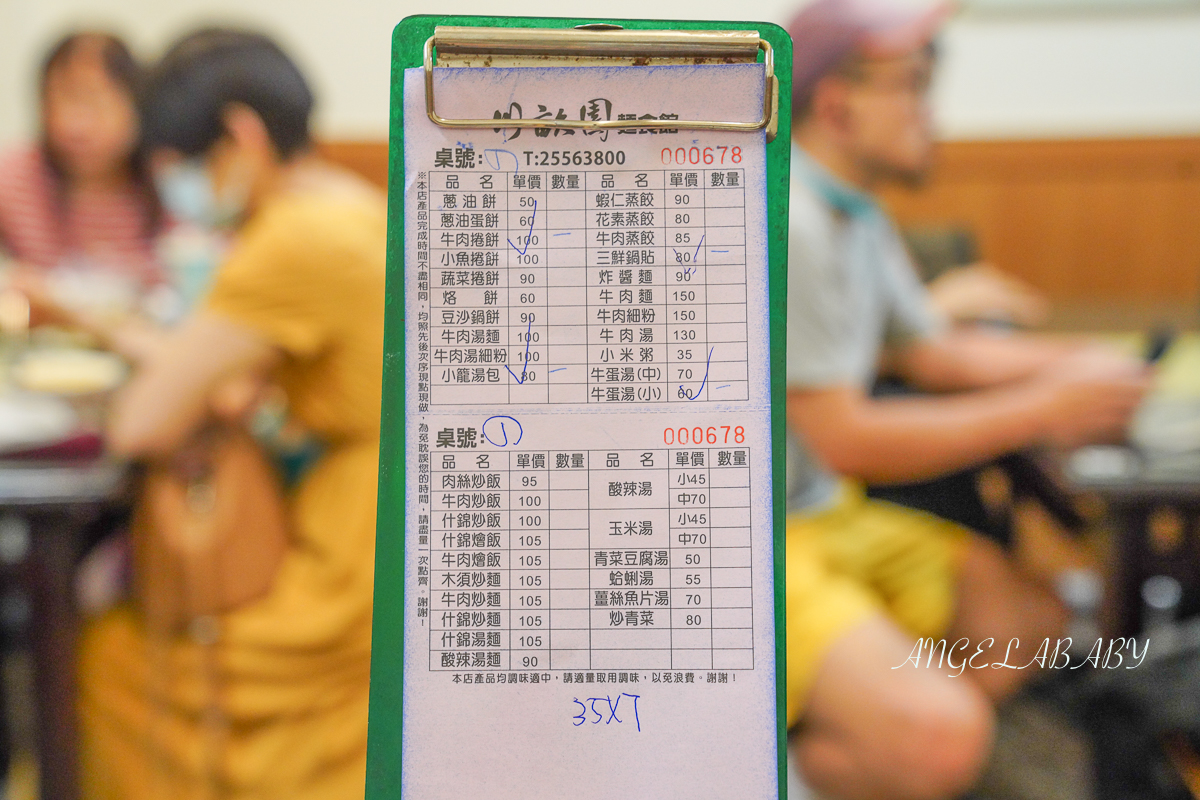 川畝園 麵食館
桌號: 1 T:25563800 000678
品 名 單價 數量 品 名 單價 數量
蔥油餅 50 蝦仁蒸餃 90
蔥油蛋餅 60 花素蒸餃 80
牛肉捲餅 100 — 牛肉蒸餃 85
小魚捲餅 100 三鮮鍋貼 80 —
蔬菜捲餅 90 炸醬麵 90
烙餅 60 牛肉麵 150
豆沙鍋餅 90 牛肉細粉 150
牛肉湯麵 100 牛肉湯 130
牛肉湯細粉 100 小米粥 35
小籠湯包 80 — 牛蛋湯(中) 70
牛蛋湯(小) 60 —
※本店產品完成時間不盡相同,均照先後次序現點現做,為免耽誤您的時間,請盡量一次點齊。謝謝!
桌號: 1 000678
品 名 單價 數量 品 名 單價 數量
肉絲炒飯 95 酸辣湯 小45
牛肉炒飯 100 中70
什錦炒飯 100 玉米湯 小45
什錦燴飯 105 中70
牛肉燴飯 105 青菜豆腐湯 50
木須炒麵 105 蛤蜊湯 55
牛肉炒麵 105 薑絲魚片湯 70
什錦炒麵 105 炒青菜 80
什錦湯麵 105
酸辣湯麵 90
本店產品均調味適中,請適量取用調味,以免浪費。謝謝!
35X7
ANGELABABY